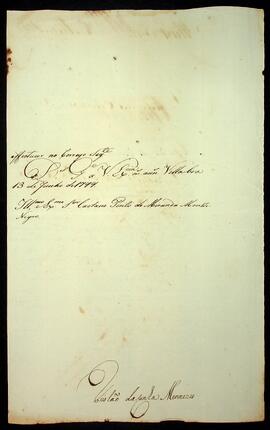 no Correyo Seg.te
D.s G.e a V. Ex.cia m.s ann.s Villa boa
13 de Junho de 1799
Ill.mo e Ex.mo S.r Caetano Pinto de Miranda Monte
Negro
Tristão da Cunha Menezes